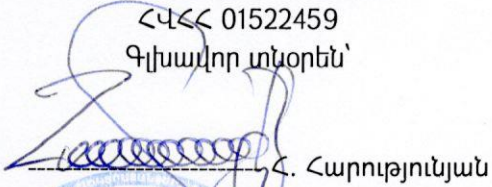 ՀՎՀՀ 01522459
Գլխավոր տնօրեն՝
Հ. Հարությունյան